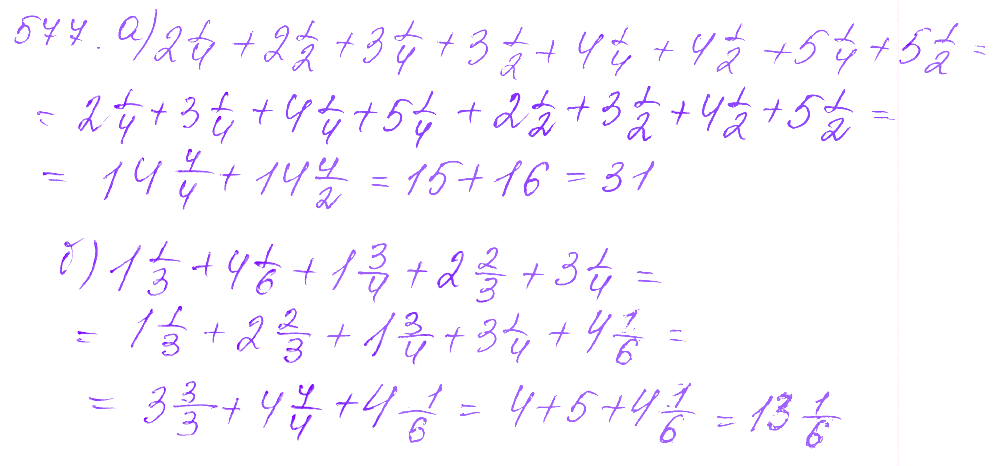 577. а) 2 1/4 + 2 1/2 + 3 1/4 + 3 1/2 + 4 1/4 + 4 1/2 + 5 1/4 + 5 1/2 =
= 2 1/4 + 3 1/4 + 4 1/4 + 5 1/4 + 2 1/2 + 3 1/2 + 4 1/2 + 5 1/2 =
= 14 4/4 + 14 4/2 = 15 + 16 = 31
б) 1 1/3 + 4 1/6 + 1 3/4 + 2 2/3 + 3 1/4 =
= 1 1/3 + 2 2/3 + 1 3/4 + 3 1/4 + 4 1/6 =
= 3 3/3 + 4 4/4 + 4 1/6 = 4 + 5 + 4 1/6 = 13 1/6